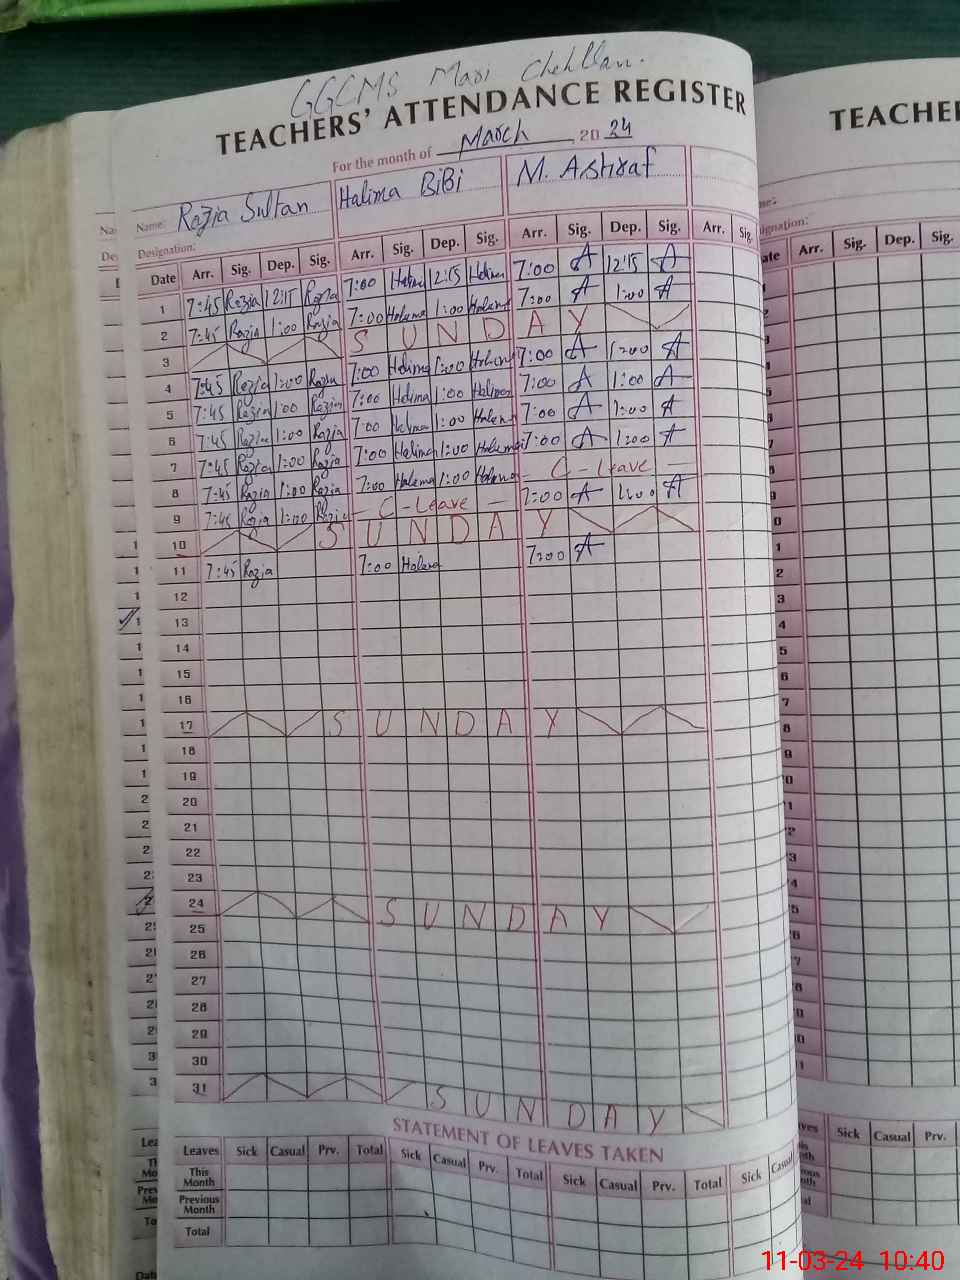 GGCMS Mari Chehllan.
TEACHERS' ATTENDANCE REGISTER
For the month of March 20 24
Name: Razia Sultan Halima BiBi M. Ashraf
Designation:
Date Arr. Sig. Dep. Sig. Arr. Sig. Dep. Sig. Arr. Sig. Dep. Sig. Arr. Sig.
1 7:45 Razia 12:15 Razia 7:00 Halima 12:15 Halima 7:00 A 12:15 A
2 7:45 Razia 1:00 Razia 7:00 Halima 1:00 Halima 7:00 A 1:00 A
3 SUNDAY
4 7:45 Razia 1:00 Razia 7:00 Halima 1:00 Halima 7:00 A 1:00 A
5 7:45 Razia 1:00 Razia 7:00 Halima 1:00 Halima 7:00 A 1:00 A
6 7:45 Razia 1:00 Razia 7:00 Halima 1:00 Halima 7:00 A 1:00 A
7 7:45 Razia 1:00 Razia 7:00 Halima 1:00 Halima 7:00 A 1:00 A
8 7:45 Razia 1:00 Razia 7:00 Halima 1:00 Halima - C-Leave -
9 7:45 Razia 1:00 Razia - C-Leave - 7:00 A 1:00 A
10 SUNDAY
11 7:45 Razia 7:00 Halima 7:00 A
12
13
14
15
16
17 SUNDAY
18
19
20
21
22
23
24 SUNDAY
25
26
27
28
29
30
31 SUNDAY
STATEMENT OF LEAVES TAKEN
Leaves Sick Casual Prv. Total Sick Casual Prv. Total Sick Casual Prv. Total Sick Casual
This Month
Previous Month
Total
TEACHE
Arr. Sig. Dep. Sig.
Sick Casual Prv.
11-03-24 10:40